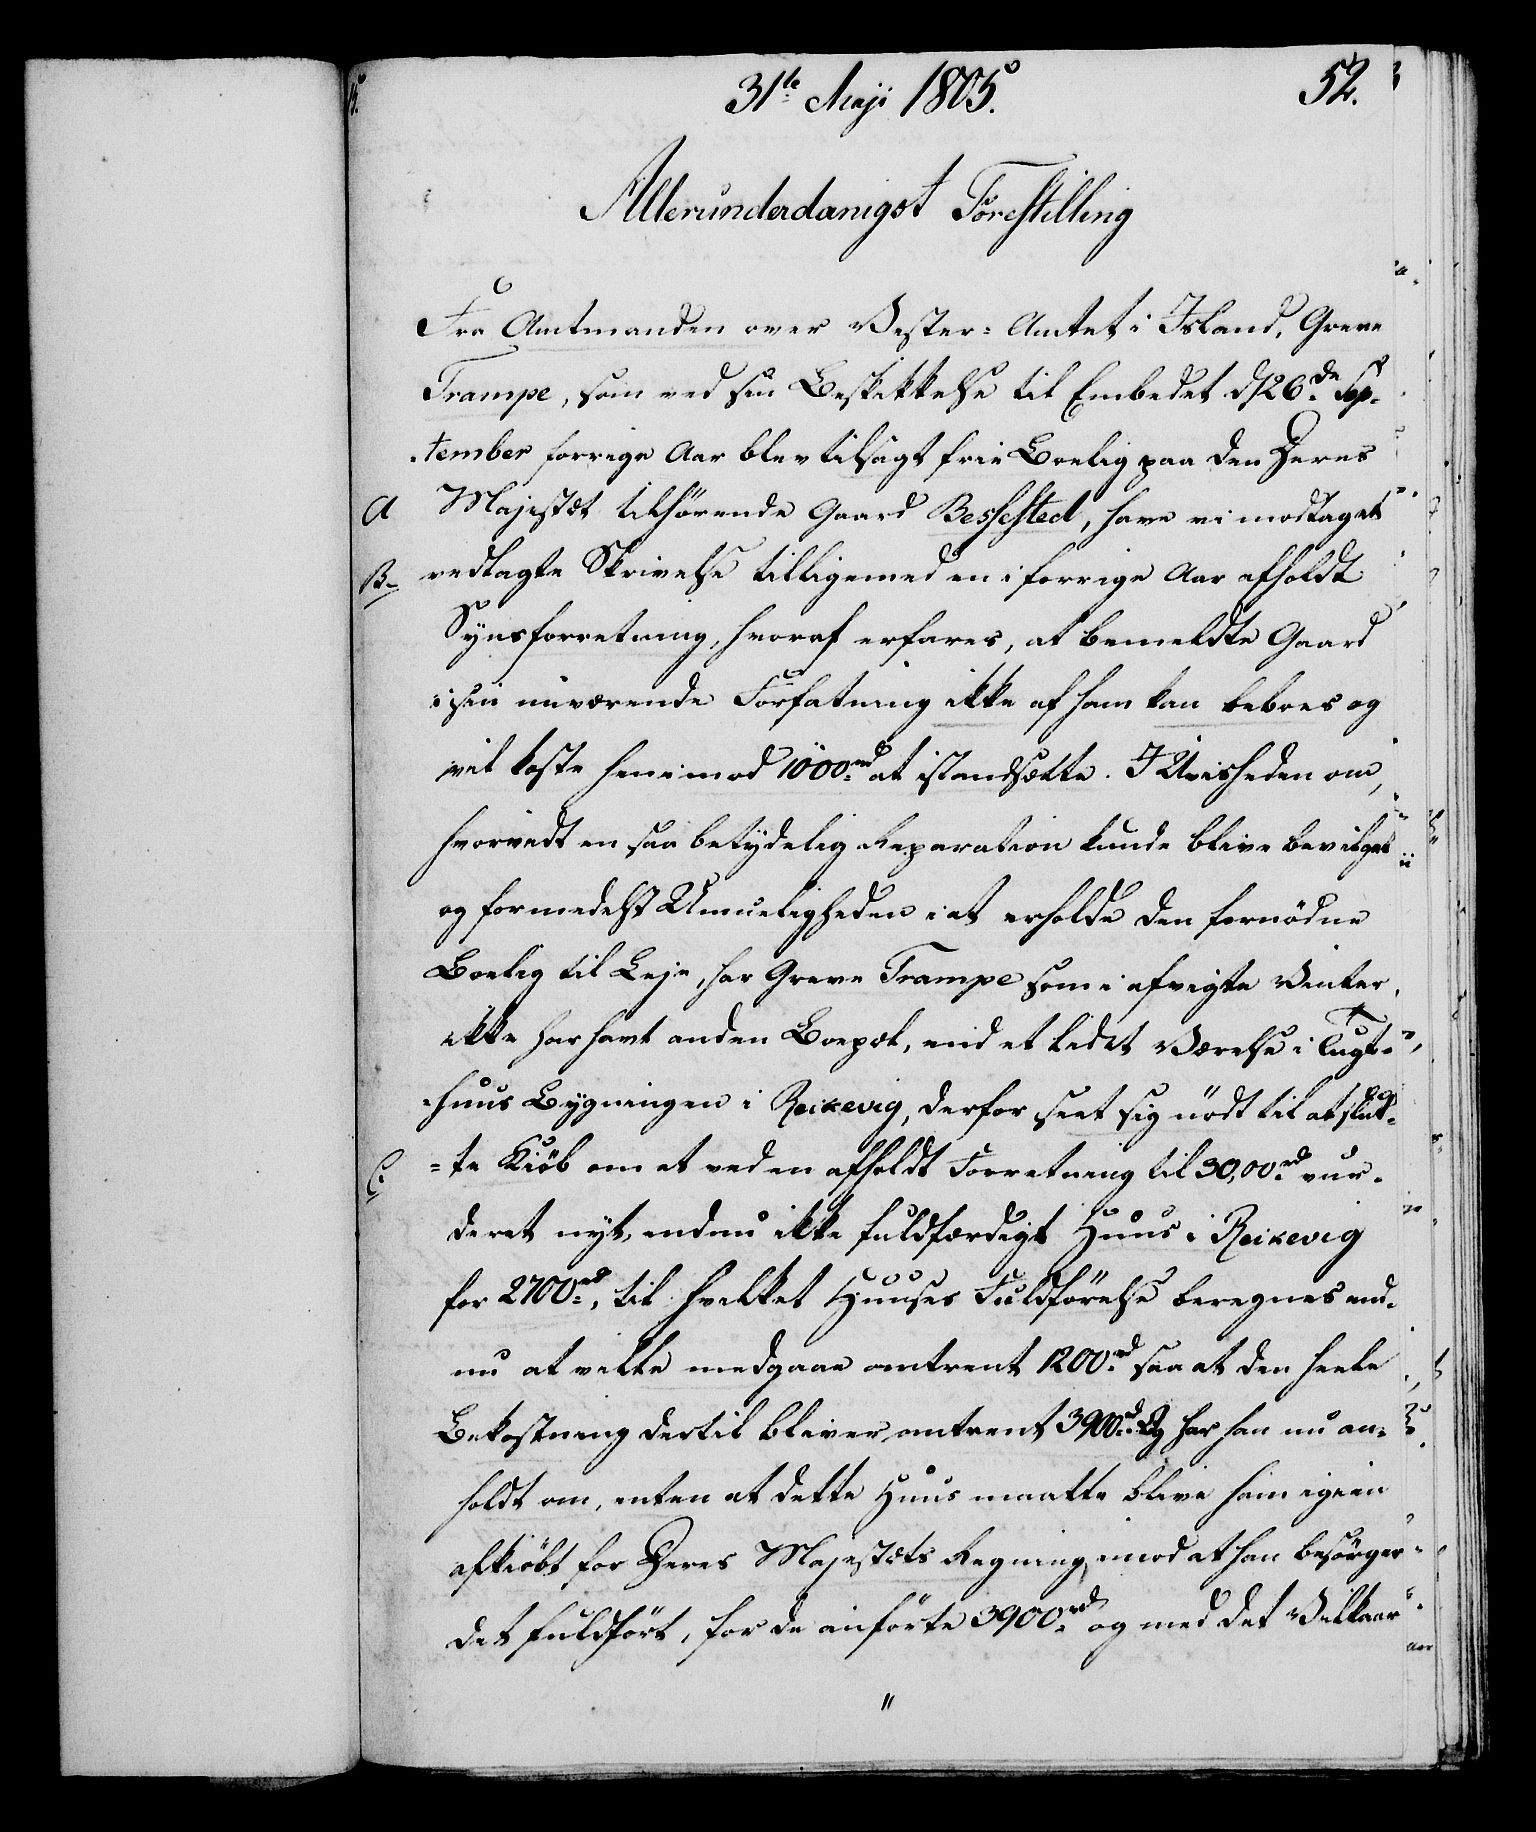 31te Maji 1805.
52.
Allerunderdanigst Forestilling
Fra Amtmanden over Vester-Amtet i Island, Greve
Trampe, som ved sin Beskikkelse til Embedet d/26de Sep-
-tember forrige Aar blev tilsagt frie Boelig paa den Deres
A Majestæt tilhørende Gaard Bessested, have vi modtaget
B. vedlagte Skrivelse tilligemed en i forrige Aar afholdt
Synsforretning, hvoraf erfares, at bemeldte Gaard
i sin nuværende Forfatning ikke af ham kan beboes og
vil koste henimod 1000rd at istandsætte. I Uvisheden om,
hvorvidt en saa betydelig Reparation kunde blive bevilget
og formedelst Umueligheden i at erholde den fornødne
Boelig til Leje, har Greve Trampe som i afvigte Vinter
ikke har havt anden Boepæl, end et lidet Værelse i Tugt-
-huus Bygningen i Reikevig, derfor seet sig nødt til at slut-
C. -te Kiøb om et ved en afholdt Forretning til 30,00rd vur-
deret nyt, endnu ikke fuldfærdigt Huus i Reikevig
for 2700rd, til hvilket Huuses Fuldførelse beregnes end-
nu at ville medgaae omtrent 1200rd saa at den heele
Bekostning dertil bliver omtrent 3900rd. Og har han nu an-
holdt om, enten at dette Huus maatte blive ham igien
afkiøbt for Deres Majestæts Regning, imod at han besørger
det fuldført, for de anførte 3900rd og med det Vilkaar
"